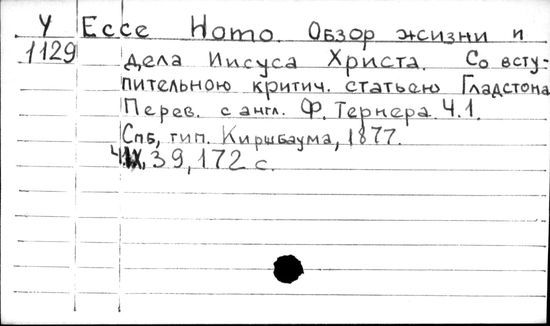 У Ecce Homo. Обзор жизни и
1129 дела Иисуса Христа. Со всту-
пительною критич. статьею Гладстона
Перев. с англ. Ф. Тернера. Ч.1.
Спб, тип. Киршбаума, 1877.
39, 172 с.